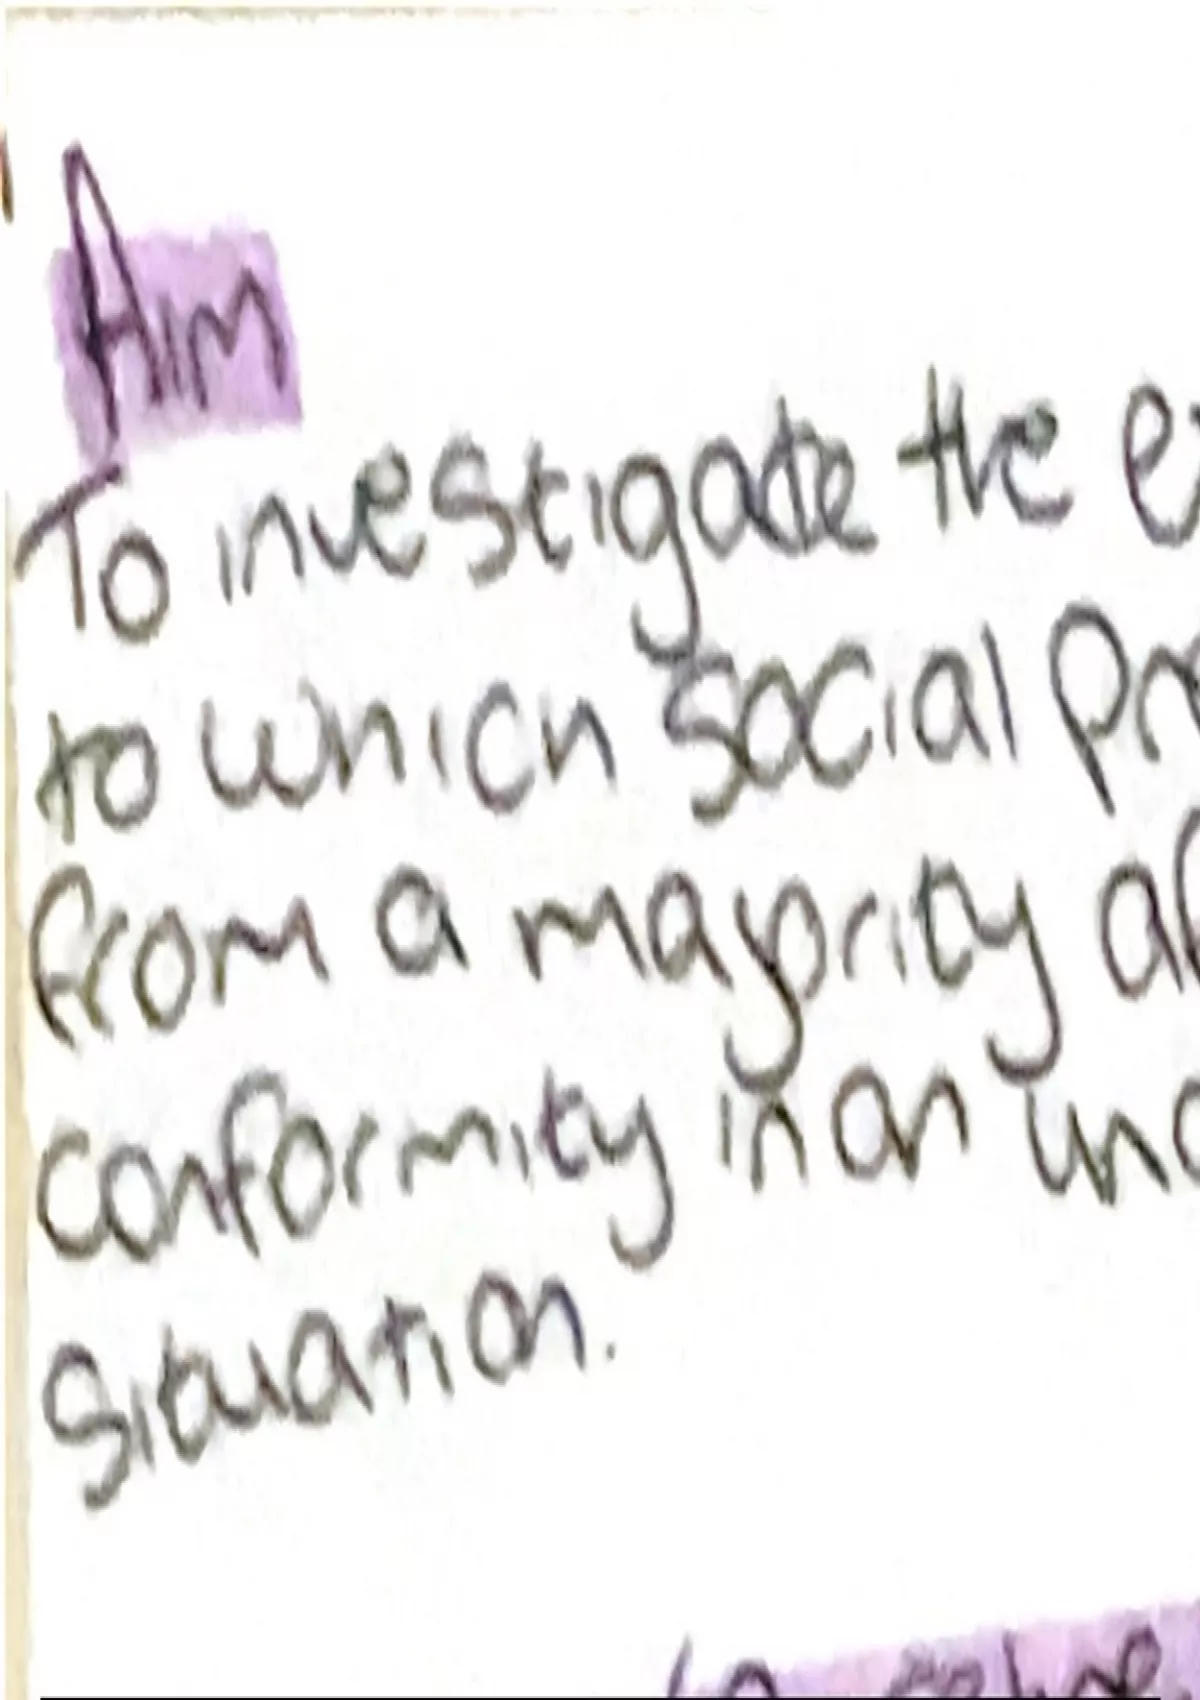 Aim
To investigate the e
to which social pr
from a majority af
conformity in an una
situation.